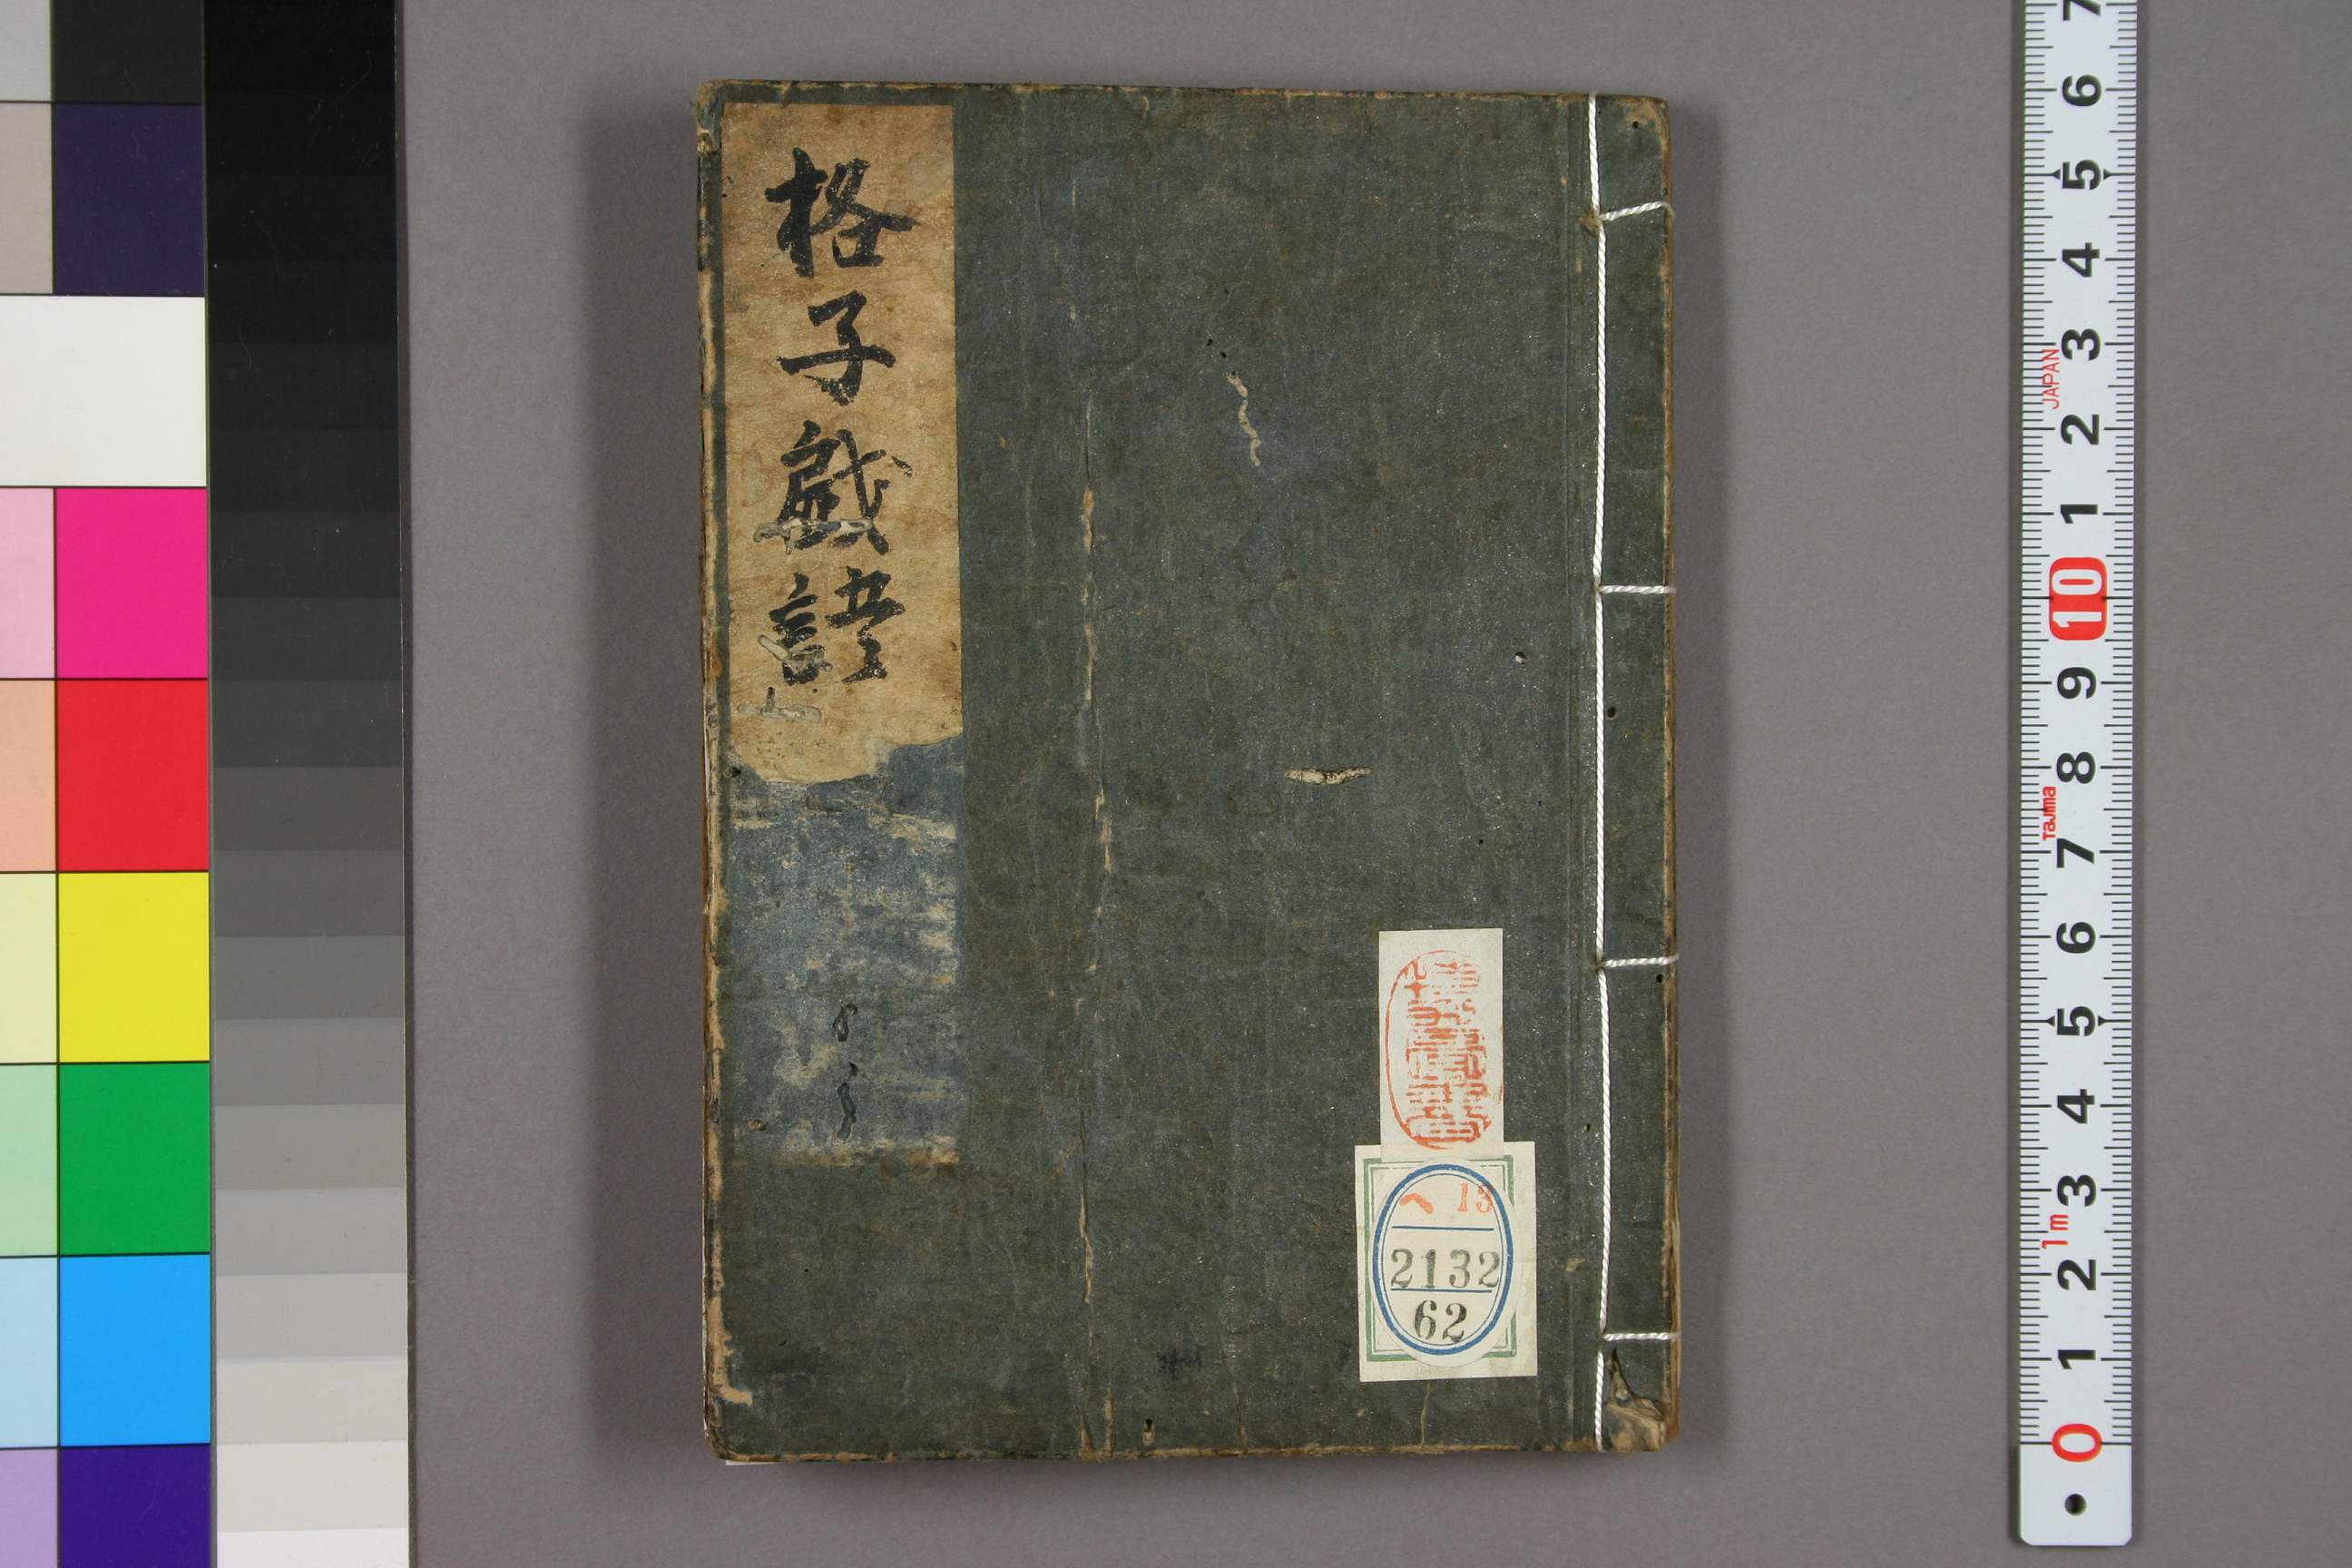 格子戯語
へ 13
2132
62
7
6
5
4
3
JAPAN
2
1
10
9
8
Tajima
7
6
5
4
3
1m
2
1
0